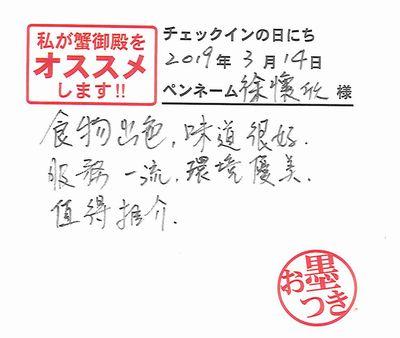 私が蟹御殿を
オススメ
します!!
チェックインの日にち
2019年3月14日
ペンネーム徐懷 様
食物出色,味道很好.
服務一流,環境優美.
值得推介.
お墨
つき